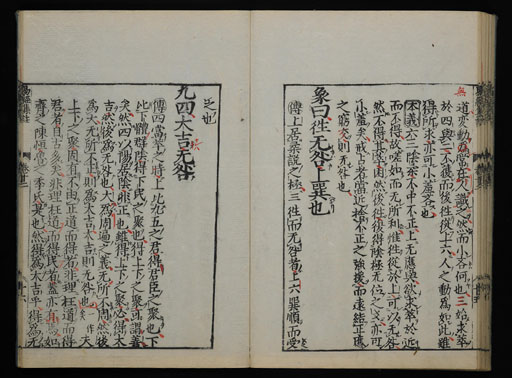 道變動無常在人識之然而小吝何也三始求萃
於四與二不獲而後往從上六人之動爲如此雖
得所求亦可小羞吝也
本義六三陰柔不中不正上无應與欲求萃於近
而不得故嗟如而无所利惟往從於上可以无咎
然不得其萃困然後往復得陰極无位之爻亦可
小羞矣戒占者當近捨不正之強援而遠結正應
之窮交則无咎也
象曰往无咎上巽也
傳上居柔說之極三往而无咎者上六巽順而受
之也
九四大吉无咎
傳四當萃之時上比九五之君得君臣之聚也下
比下體羣陰得下民之聚也得上下之聚可謂善
矣然四以陽居陰非正也雖得上下之聚必得大
吉然後爲无咎也大爲周遍之義无所不周然後
爲大无所不正則爲大吉大吉則无咎也夫
上下之聚固有不由正道而得者非理枉道而得
君者自古多矣非理枉道而得民者蓋亦有焉如
齊之陳恒魯之季氏是也然得爲大吉乎得爲无